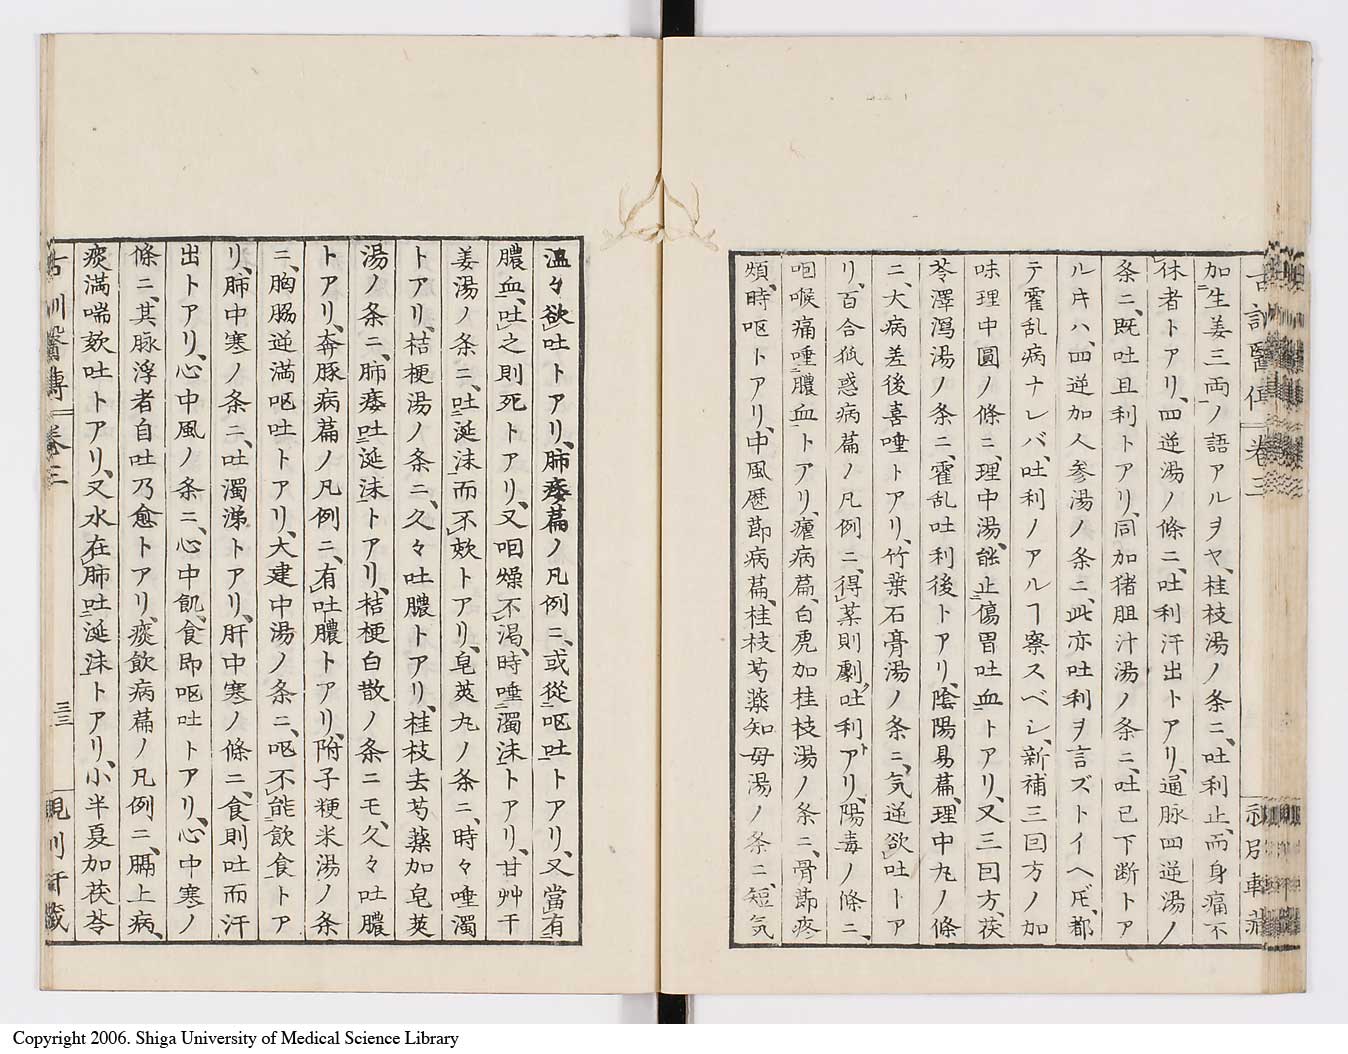 加生姜三両ノ語アルヲヤ、桂枝湯ノ条ニ、吐利止、而身痛不
休者トアリ、四逆湯ノ條ニ、吐利汗出トアリ、通脉四逆湯ノ
条ニ、既吐且利トアリ、同加猪胆汁湯ノ条ニ、吐已下断トア
ルキハ、四逆加人参湯ノ条ニ、此亦吐利ヲ言ズトイヘ𪜈、都
テ霍乱病ナレバ、吐利ノアルヿ察スベシ、新補三回方ノ加
味理中圓ノ條ニ、理中湯、能止傷胃吐血トアリ、又三回方、茯
苓澤瀉湯ノ条ニ、霍乱吐利後トアリ、陰陽易萹、理中丸ノ條
ニ、大病差後喜唾トアリ、竹葉石膏湯ノ条ニ、気逆欲吐トア
リ、百合狐惑病萹ノ凡例ニ、得薬則劇吐利トアリ、陽毒ノ條ニ、
咽喉痛唾膿血トアリ、瘧病萹、白虎加桂枝湯ノ条ニ、骨莭疼
煩、時呕トアリ、中風歴莭病萹、桂枝芍薬知母湯ノ条ニ、短気
温々欲吐トアリ、肺痿萹ノ凡例ニ、或從呕吐トアリ、又當有
膿血、吐之則死トアリ、又咽燥不渇、時唾濁沫トアリ、甘艸干
姜湯ノ条ニ、吐涎沫而不欬トアリ、皂莢丸ノ条ニ、時々唾濁
トアリ、桔梗湯ノ条ニ、久々吐膿トアリ、桂枝去芍薬加皂莢
湯ノ条ニ、肺痿吐涎沫トアリ、桔梗白散ノ条ニモ、久々吐膿
トアリ、奔豚病萹ノ凡例ニ、有吐膿トアリ、附子粳米湯ノ条
ニ、胸脇逆満呕吐トアリ、大建中湯ノ条ニ、呕不能飲食トア
リ、肺中寒ノ条ニ、吐濁涕トアリ、肝中寒ノ條ニ、食則吐而汗
出トアリ、心中風ノ条ニ、心中飢、食即呕吐トアリ、心中寒ノ
條ニ、其脉浮者自吐乃愈トアリ、痰飲病萹ノ凡例ニ、膈上病、
痰満喘欬吐トアリ、又水在肺吐涎沫トアリ、小半夏加茯苓
卷三
三三
Copyright 2006. Shiga University of Medical Science Library